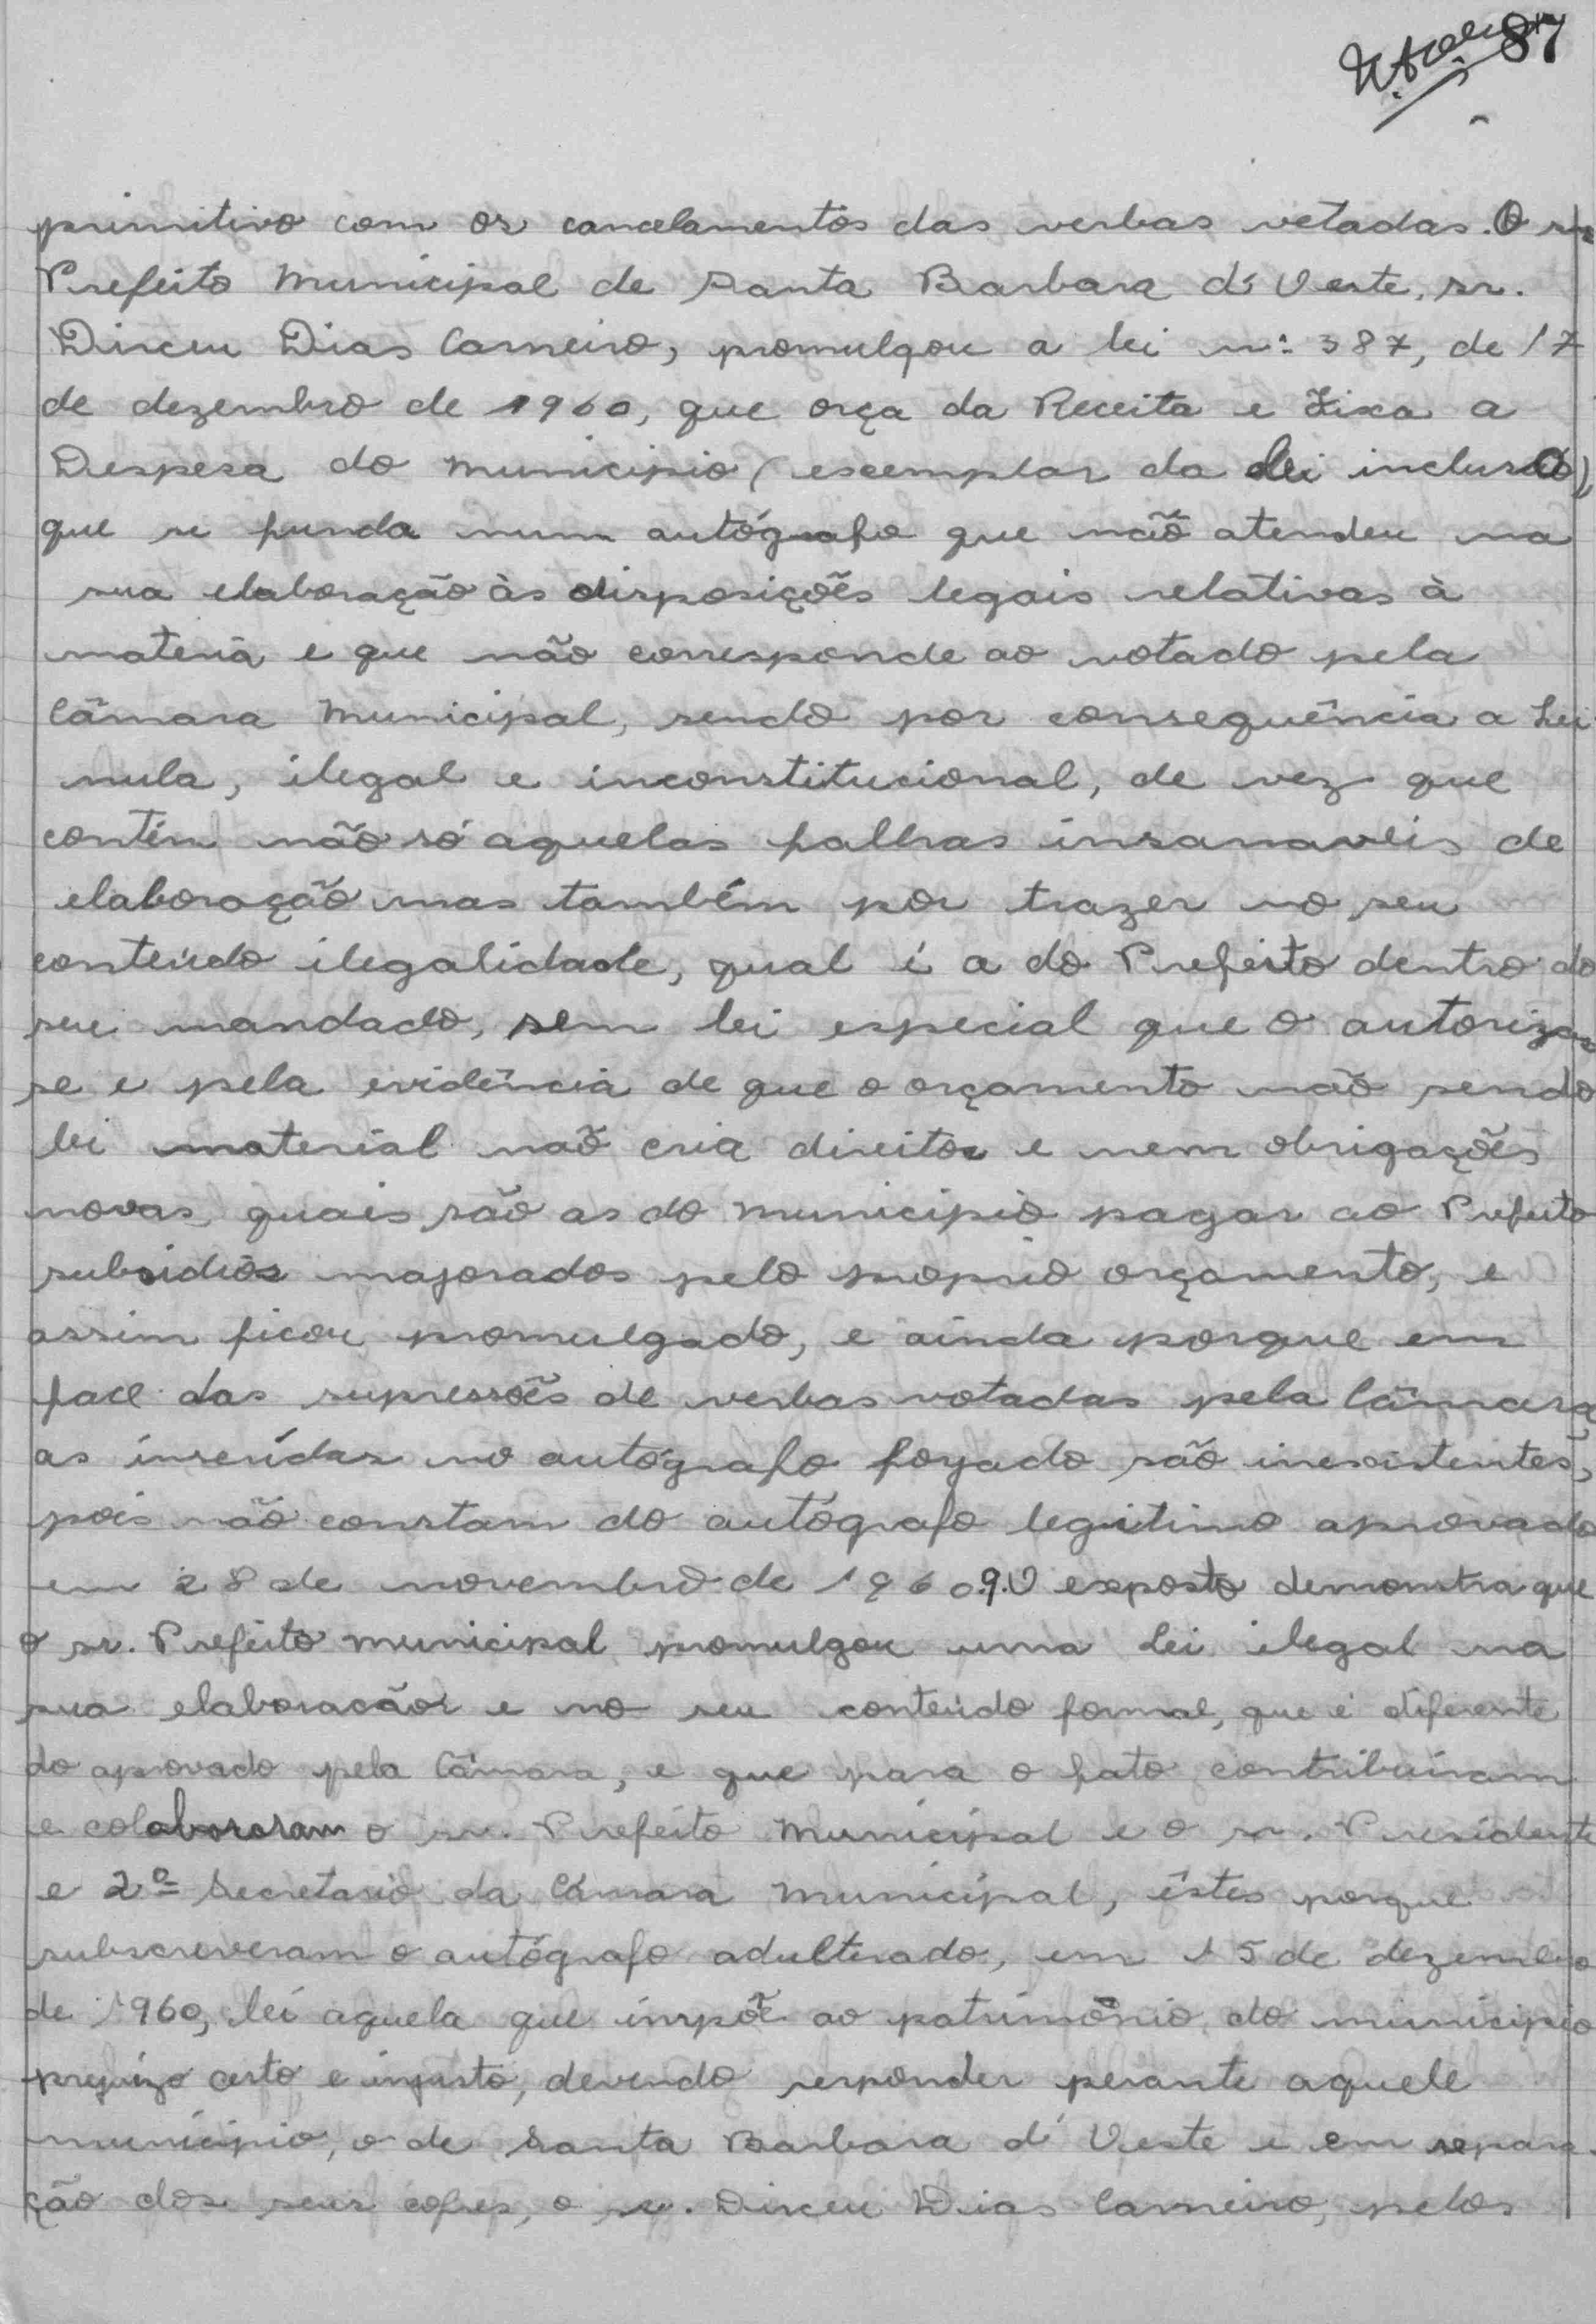 87
primitivo com os cancelamentos das verbas vetadas. O sr.
Prefeito Municipal de Santa Barbara d'Oeste, sr.
Dirceu Dias Carneiro, promulgou a lei nº 387, de 17
de dezembro de 1960, que orça da Receita e Fixa a
Despesa do municipio (exemplar da lei incluso),
que se funda num autógrafo que não atendeu na
sua elaboração às disposições legais relativas à
materia e que não corresponde ao votado pela
Câmara Municipal, sendo por consequência a Lei
nula, ilegal e inconstitucional, de vez que
contém não só aquelas falhas insanaveis de
elaboração mas também por trazer no seu
conteúdo ilegalidade, qual é a do Prefeito dentro do
seu mandado, sem lei especial que o autorizas
se e pela evidência de que o orçamento não sendo
lei material não cria direitos e nem obrigações
novas, quais são as do municipio pagar ao Prefeito
subsidios majorados pelo proprio orçamento, e
assim ficou promulgado, e ainda porque em
face das supressões de verbas votadas pela Câmara,
as inseridas no autógrafo forjado são inexistentes,
pois não constam do autógrafo legitimo aprovado
em 28 de novembro de 1960. 9. O exposto demonstra que
o sr. Prefeito municipal promulgou uma Lei ilegal na
sua elaboracão e no seu conteúdo formal, que é diferente
do aprovado pela Câmara, e que para o fato contribuiram
e colaboraram o sr. Prefeito Municipal e o sr. Presidente
e 2º Secretario da Câmara Municipal, êstes porque
subscreveram o autógrafo adulterado, em 15 de dezembro
de 1960, lei aquela que impõe ao patrimônio do municipio
prejuizo certo e injusto, devendo responder perante aquele
municipio, o de Santa Barbara d'Oeste e em repara-
ção dos seus cofres, o sr. Dirceu Dias Carneiro, pelos